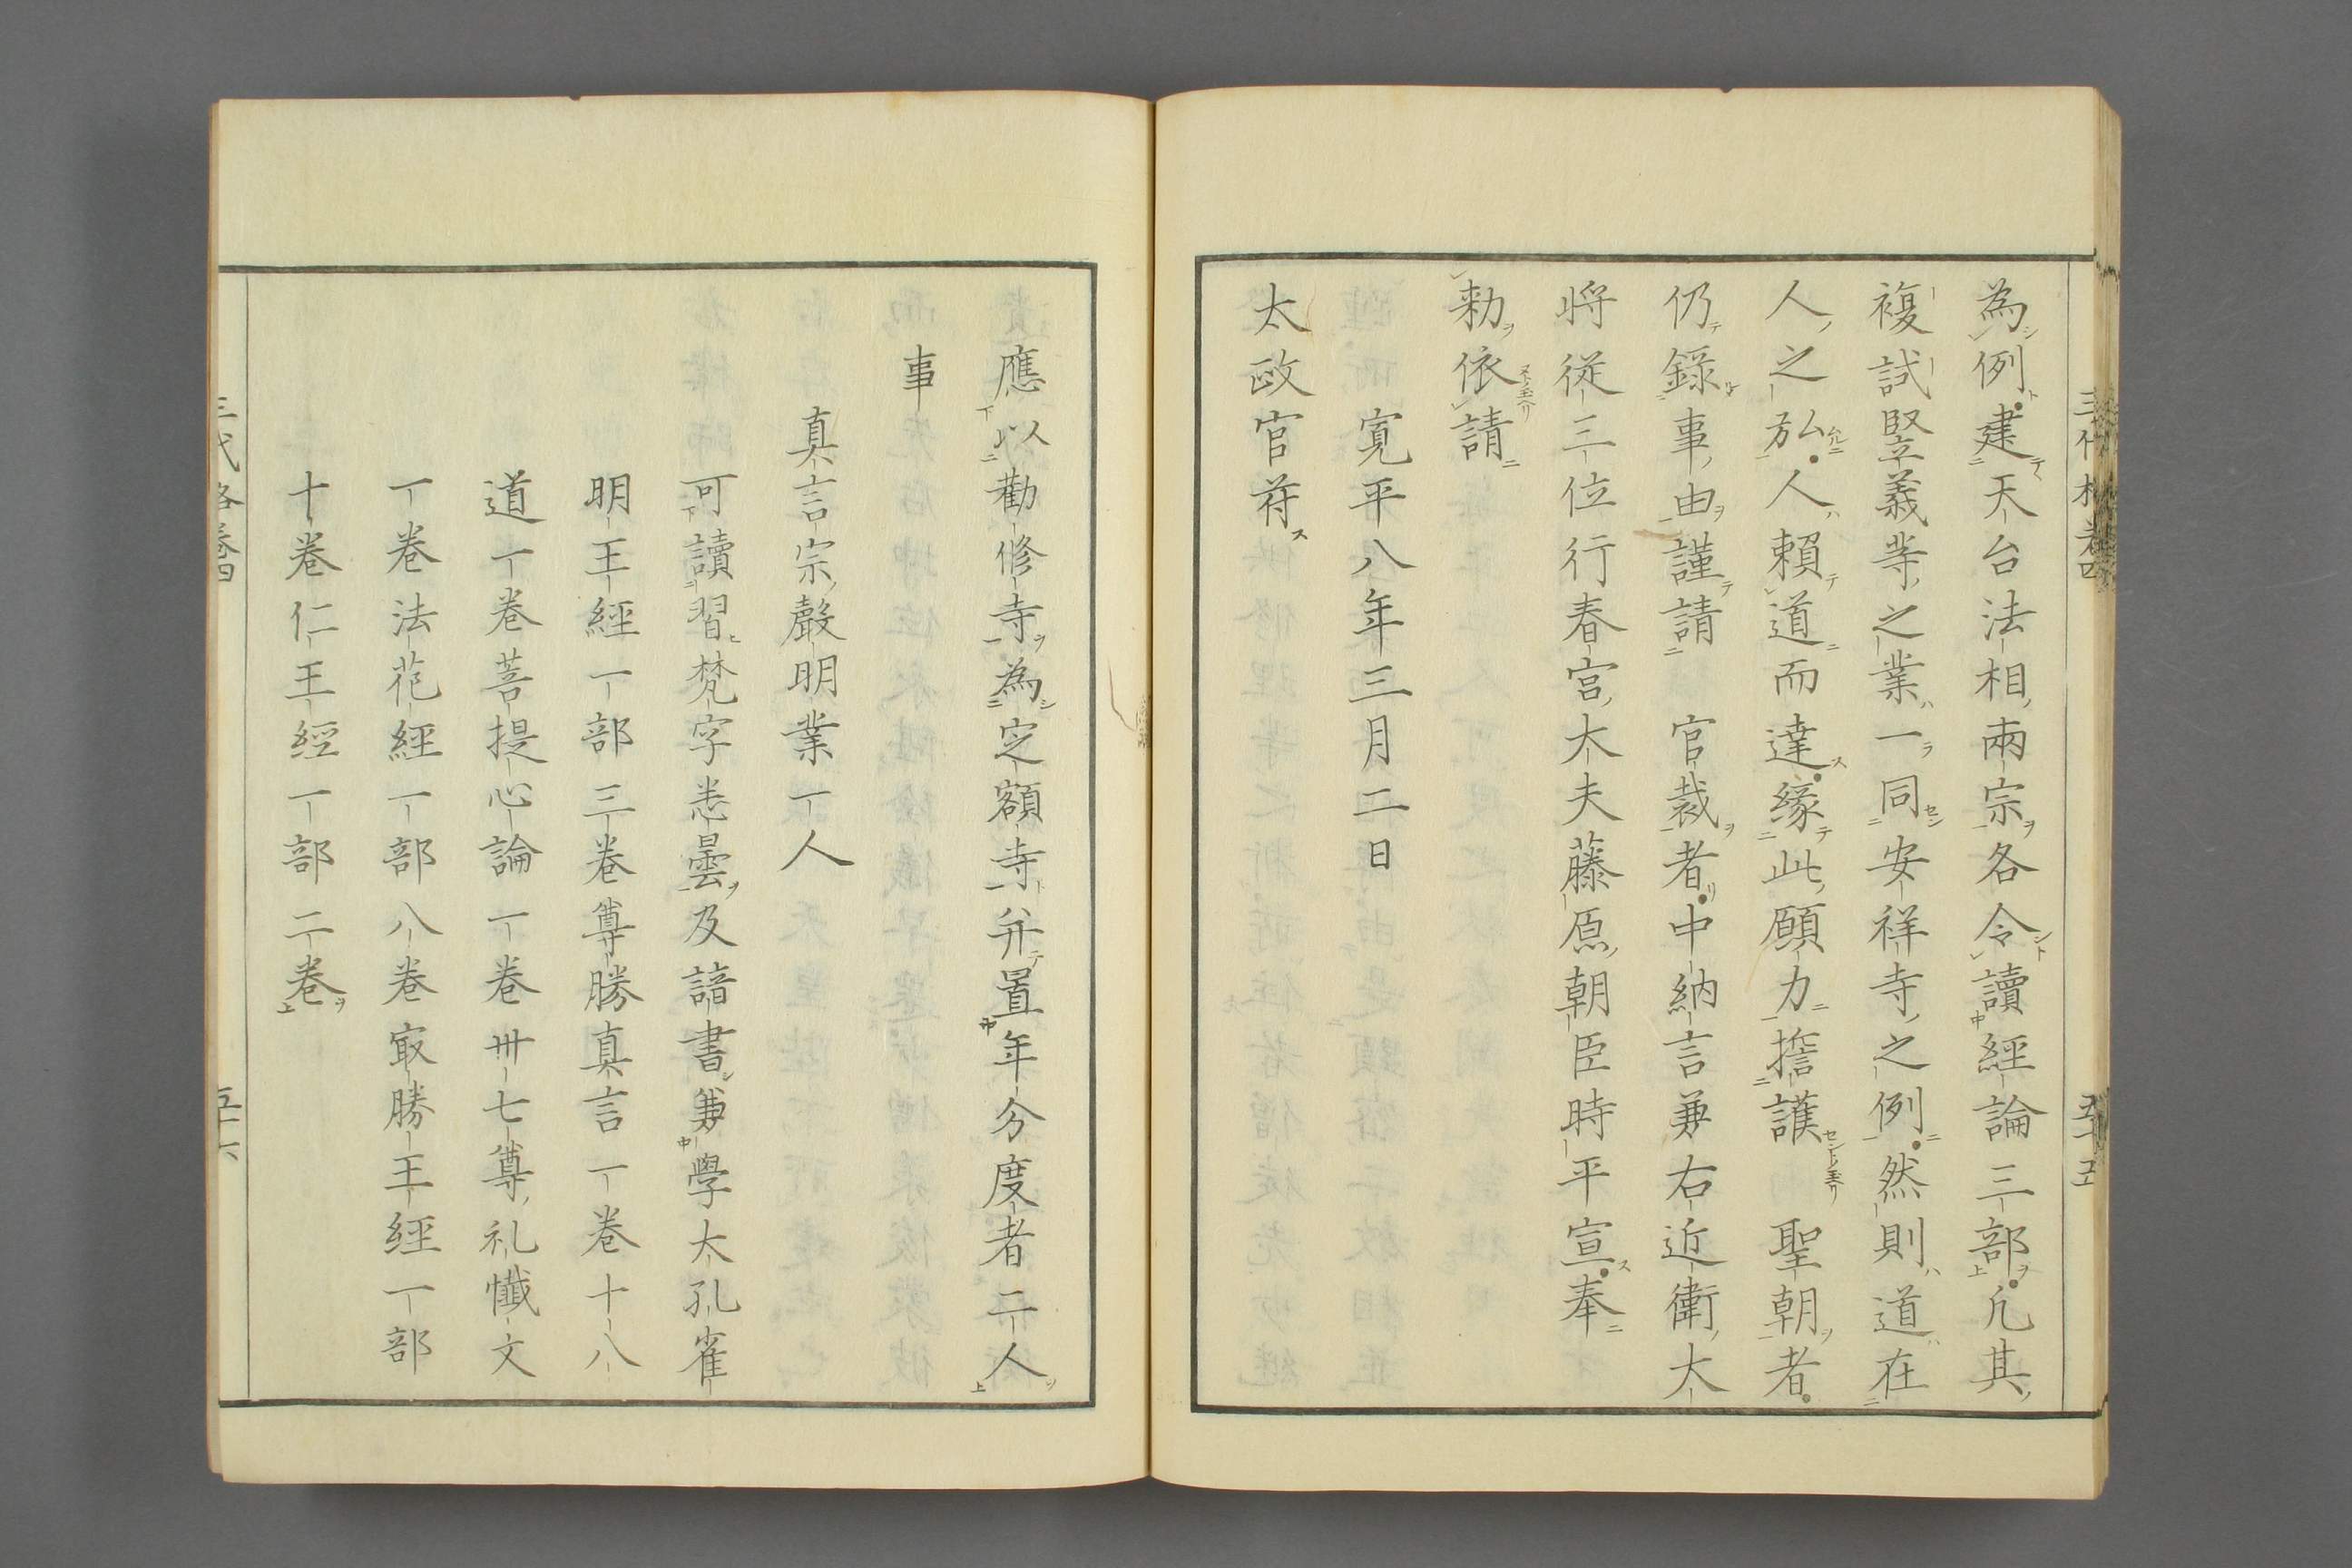 為例建天台法相兩宗各令讀經論三部凢其
複試竪義等之業一同安祥寺之例然則道在
人之弘人賴道而達縁此願力擔護聖朝者
仍錄事由謹請官裁者中納言兼右近衛大
将従三位行春宮大夫藤原朝臣時平宣奉
勅依請
寛平八年三月二日
太政官苻
應以勸修寺為定額寺并置年分度者二人
事
真言宗聲明業一人
可讀習梵字悉曇及諳書兼學大孔雀
明王經一部三巻尊勝真言一巻十八
道一巻菩提心論一巻卅七尊礼懺文
一巻法花經一部八巻㝡勝王經一部
十巻仁王經一部二巻